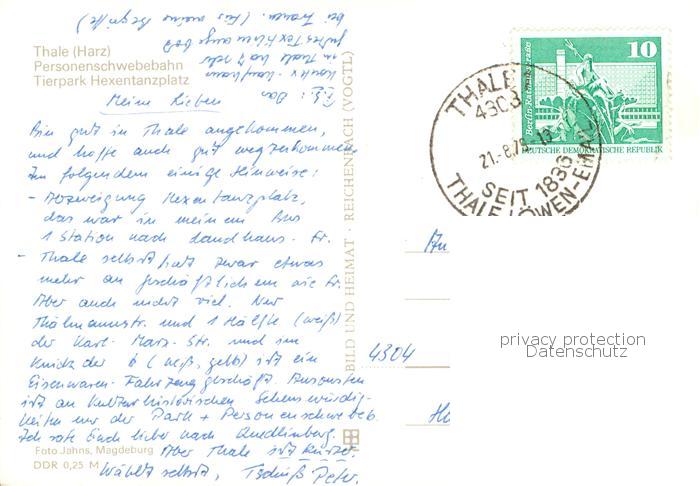 Thale (Harz)
Personenschwebebahn
Tierpark Hexentanzplatz
Meine Lieben
Bin gut in Thale angekommen,
und hoffe auch gut wegzukommen.
Im folgendem einige Hinweise:
- Abzweigung Hexentanzplatz,
das war in meinem Bus
1 Station nach Landhaus. Fr.
- Thale selbst hat zwar etwas
mehr an geschäftlichem wie Fr.
Aber auch nicht viel. Nur
Thälmannstr. und 1 Hälfte (weiß)
der Karl-Marx-Str. und im
Knick der 6 (weiß, gelb) ist ein
Eisenwaren-Fahrzeuggeschäft. Ansonsten
ist an kulturhistorischen Sehenswürdig-
keiten nur der Park + Personenschwebeb.
Ich rate Euch lieber nach Quedlinburg.
Aber Thale ist kürzer.
Wählt selbst, Tschüß Peter.
P.S.: Das
Konsix-Kaufhaus
in Thale hat sehr
gutes Textilienangebot
bei Frauen. (Für meine Begriffe)
Foto Jahns, Magdeburg
DDR 0,25 M
BILD UND HEIMAT · REICHENBACH (VOGTL)
10
Berlin Rathausstraße
DEUTSCHE DEMOKRATISCHE REPUBLIK
THALE
4303
21.-8.79-13
SEIT 1836
THALE LÖWEN-EMAIL
An
4304
privacy protection
Datenschutz